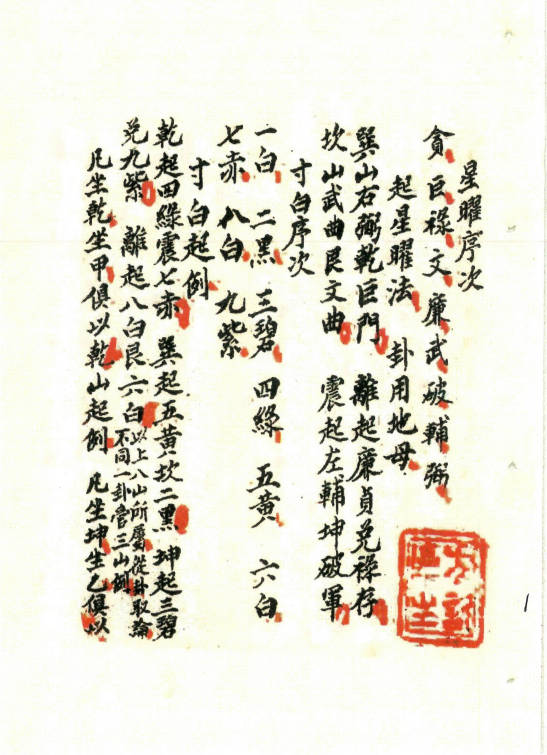 星曜序次
貪 巨 祿 文 廉 武 破 輔 弼
起星曜法 卦用地母
巽山右弼乾巨門 離起廉貞兌祿存
坎山武曲艮文曲 震起左輔坤破軍
寸白序次
一白 二黑 三碧 四綠 五黃 六白
七赤 八白 九紫
寸白起例
乾起四綠震七赤 巽起五黃坎二黑 坤起三碧
兌九紫 離起八白艮六白 以上八山所屬從卦取論
不同一卦管三山例
凡坐乾坐甲俱以乾山起例 凡坐坤坐乙俱以
1